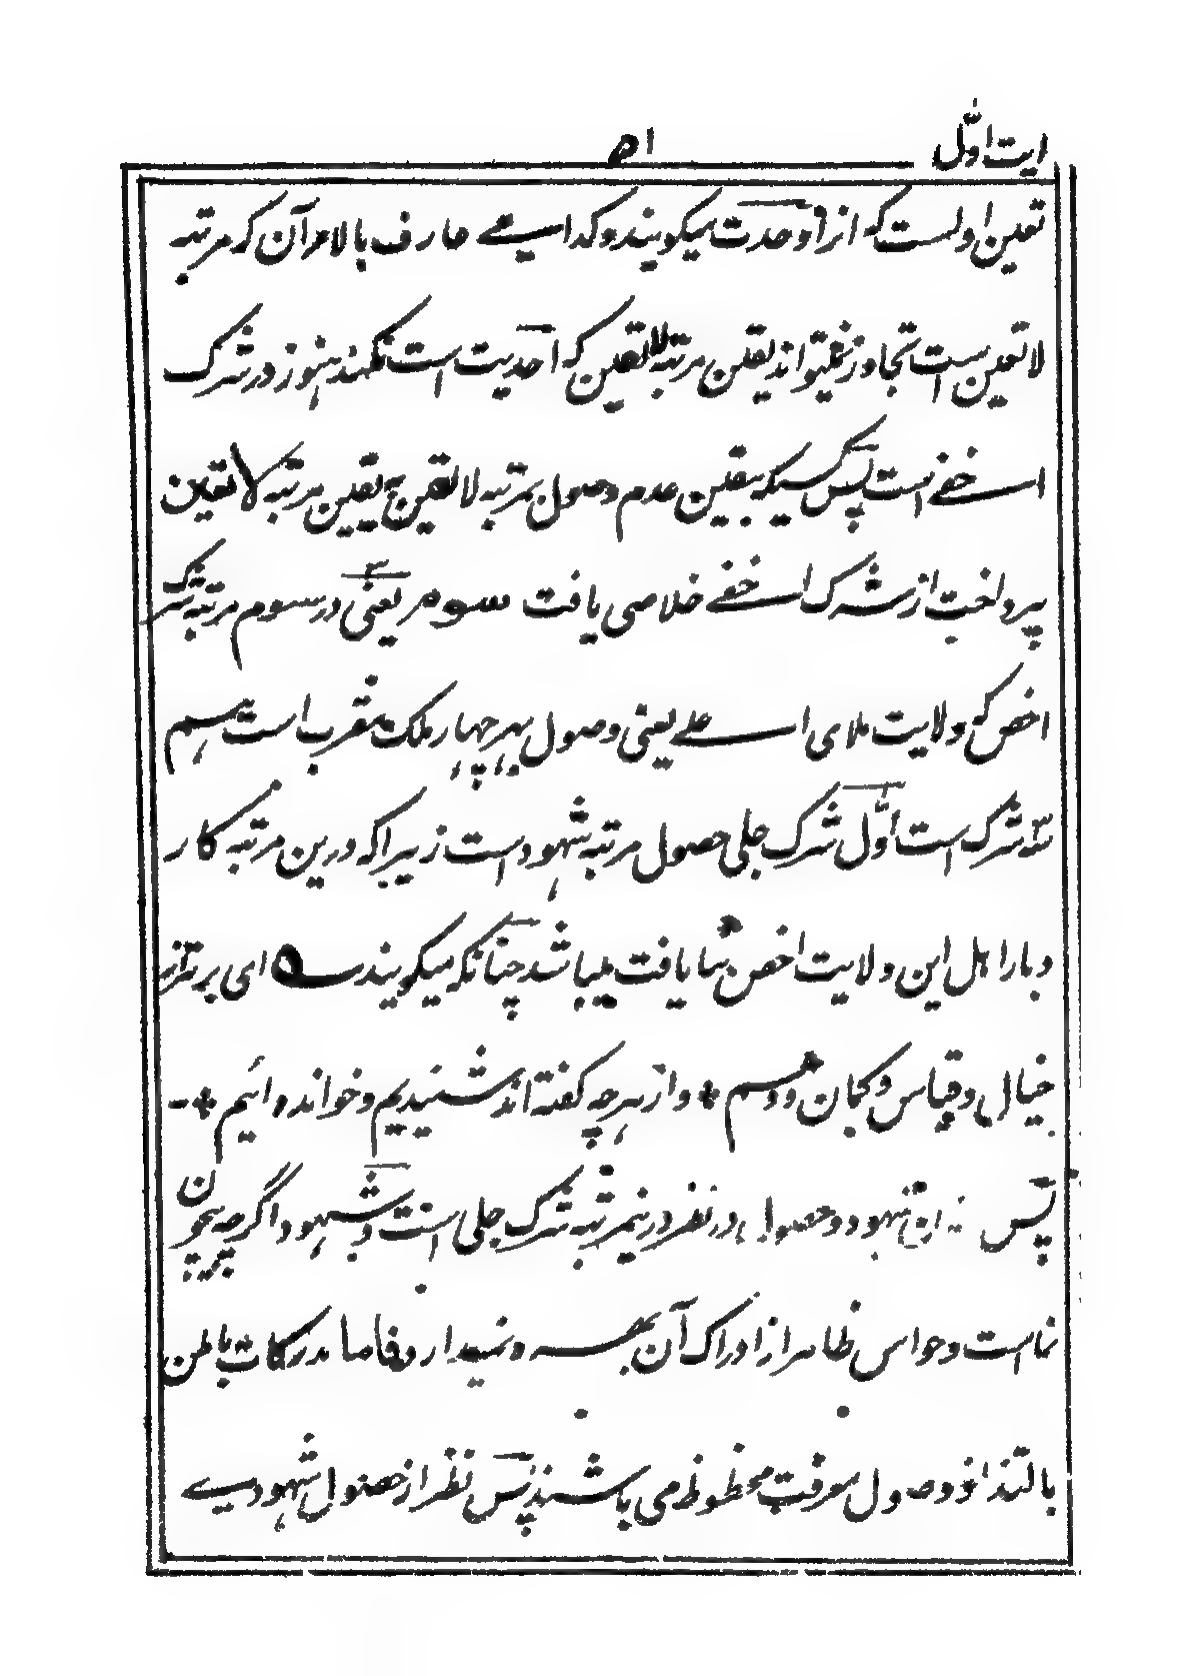 ایت اوّل
۵۱
تعین اولست که انرا وحدت میگویند و که اسے عے عارف بالا مر آن که مرتبه
لا تعین ست تجاوز نمیتواند یقین مرتبه لا تعین که احدیت است نکهند هنوز در شرک
اسے خفے است پس کسیکه بیقین عدم وصول بمرتبه لا تعین به یقین مرتبه لا تعین
پرداخت از شرک اسے خفے خلاصی یافت سوم یعنی در سوم مرتبه شرک
اخص که ولایت ملای اسے علے یعنی وصول بهر چهار ملک مقرب است هم
سه شرک است اوّل شرک جلی حصول مرتبه شهود است زیرا که درین مرتبه کار
و بار اهل این ولایت اخص شا یافت میباشد چنانکه میگویند ه ای برتر از
خیال و قیاس و گمان و وهم * وز هرچه گفته اند شنیدیم و خوانده ایم *-
پس شهود و حصول در نظر درینمرتبه شرک جلی است و شهود اگرچه بیچون
نماست و حواس ظاهر از ادراک آن بهره نمیدارد فاما مدرکات باطن
بالتذاذ و وصول معرفت محظوظ می باشند پس نظر از حصول شهودیے